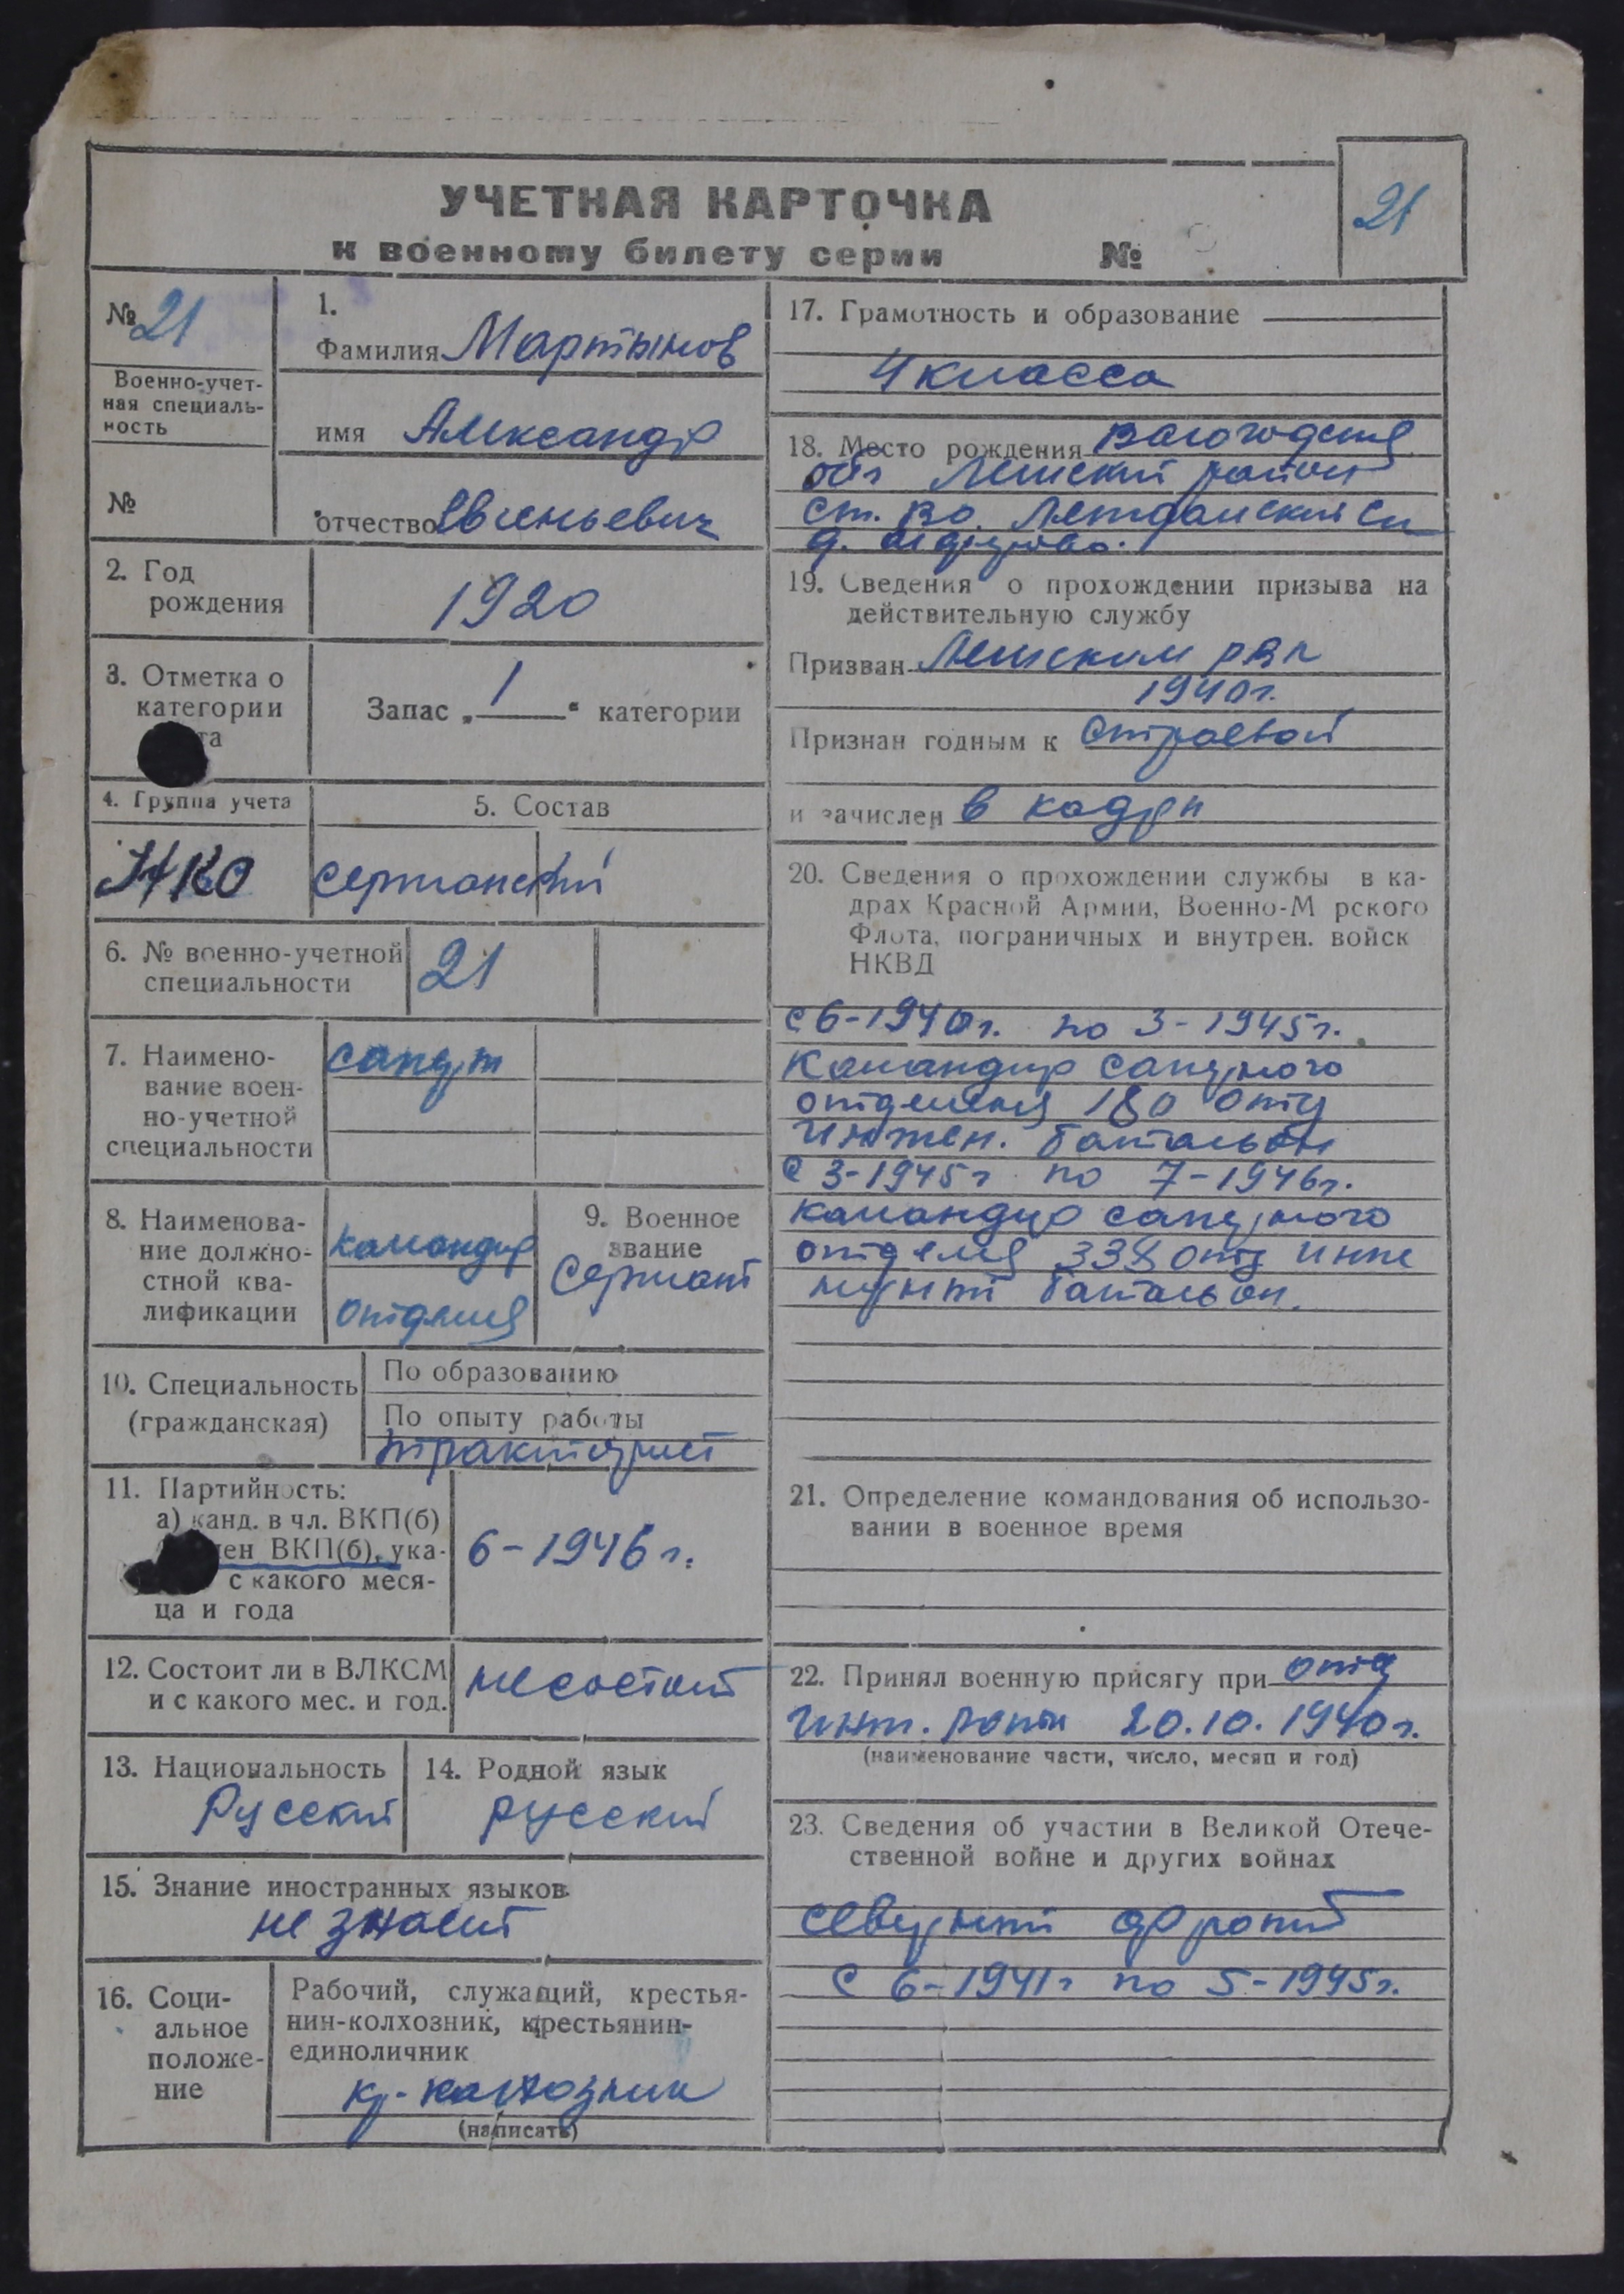 УЧЕТНАЯ КАРТОЧКА
к военному билету серии №
21
№ 21
Военно-учет-
ная специаль-
ность
№
1.
Фамилия Мартынов
имя Александр
отчество Евгеньевич
2. Год
рождения
1920
3. Отметка о
категории
та
Запас „ 1 “ категории
4. Группа учета
НКО
5. Состав
сержанский
6. № военно-учетной
специальности
21
7. Наимено-
вание воен-
но-учетной
специальности
сапер
8. Наименова-
ние должно-
стной ква-
лификации
командир
отделия
9. Военное
звание
Сержант
10. Специальность
(гражданская)
По образованию
По опыту работы
тракторист
11. Партийность:
а) канд. в чл. ВКП(б)
член ВКП(б), ука-
с какого меся-
ца и года
6-1946 г.
12. Состоит ли в ВЛКСМ
и с какого мес. и год.
не состоит
13. Национальность
Русский
14. Родной язык
русский
15. Знание иностранных языков
не знает
16. Соци-
альное
положе-
ние
Рабочий, служащий, крестья-
нин-колхозник, крестьянин-
единоличник
кр-колхозник
(написать)
17. Грамотность и образование
4 класса
18. Место рождения Вологодская
обл район
ст.
д.
19. Сведения о прохождении призыва на
действительную службу
Призван
1940г.
Признан годным к строевой
и зачислен в кадры
20. Сведения о прохождении службы в ка-
драх Красной Армии, Военно-М рского
Флота, пограничных и внутрен. войск
НКВД
с 6-1940г. по 3-1945г.
Командир саперного
отделения 180 отд
инжен. батальон
с 3-1945г по 7-1946г.
командир саперного
отделия 338 отд инже
нерный батальон.
21. Определение командования об использо-
вании в военное время
22. Принял военную присягу при отд
инж. роты 20.10.1940г.
(наименование части, число, месяц и год)
23. Сведения об участии в Великой Отече-
ственной войне и других войнах
северный фронт
с 6-1941г по 5-1945г.